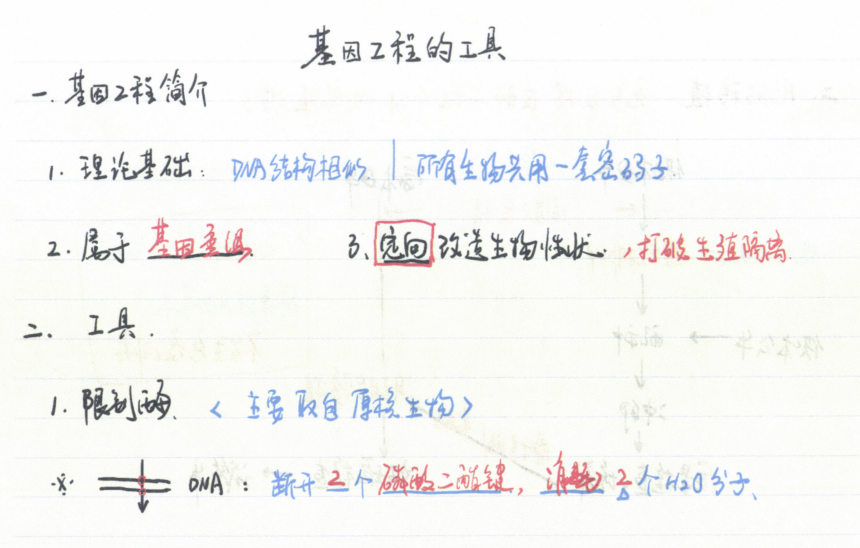 基因工程的工具
一. 基因工程简介
1. 理论基础: DNA结构相似 | 所有生物共用一套密码子
2. 属于 基因重组. 3. 定向改造生物性状, 打破生殖隔离.
二. 工具.
1. 限制酶. <主要取自原核生物>
※ DNA: 断开2个磷酸二酯键, 消耗2个H2O分子.